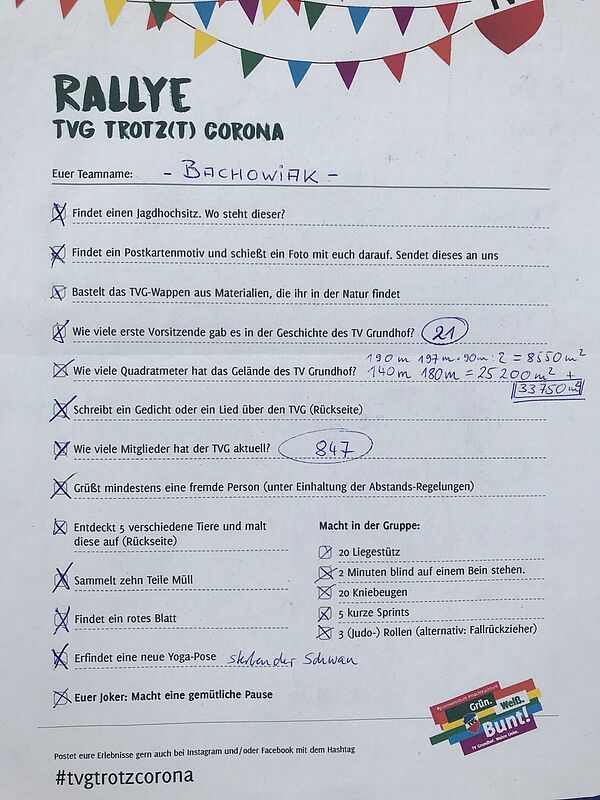 RALLYE
TVG TROTZ(T) CORONA
Euer Teamname: - BACHOWIAK -
Findet einen Jagdhochsitz. Wo steht dieser?
Findet ein Postkartenmotiv und schießt ein Foto mit euch darauf. Sendet dieses an uns
Bastelt das TVG-Wappen aus Materialien, die ihr in der Natur findet
Wie viele erste Vorsitzende gab es in der Geschichte des TV Grundhof? 21
190m 197m·90m:2 = 8550m²
Wie viele Quadratmeter hat das Gelände des TV Grundhof? 140m 180m = 25200m² +
33750m²
Schreibt ein Gedicht oder ein Lied über den TVG (Rückseite)
Wie viele Mitglieder hat der TVG aktuell? 847
Grüßt mindestens eine fremde Person (unter Einhaltung der Abstands-Regelungen)
Entdeckt 5 verschiedene Tiere und malt
diese auf (Rückseite)
Sammelt zehn Teile Müll
Findet ein rotes Blatt
Erfindet eine neue Yoga-Pose sterbender Schwan
Euer Joker: Macht eine gemütliche Pause
Macht in der Gruppe:
20 Liegestütz
2 Minuten blind auf einem Bein stehen.
20 Kniebeugen
5 kurze Sprints
3 (Judo-) Rollen (alternativ: Fallrückzieher)
Grün.
Weiß.
Bunt!
TV Grundhof. Wahre Liebe.
Postet eure Erlebnisse gern auch bei Instagram und/oder Facebook mit dem Hashtag
#tvgtrotzcorona